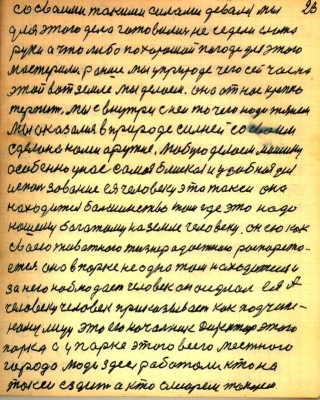 23
со своими такими силами делали мы
для этого дело готовили не сидели сложа
руки а что либо по хорошой погоде для этого
мастерили. Раньше мы у природе чего сейчас на
этой вот земле мы делаем. оно от нас крепко
терпит. мы с внутри с нея то чего надо тянем
мы оказался в природе силней со своим
сделана нами оружия, любую делаем машину
особенно у нас самая близкая и удобная для
использование ея человеку это такси она
находится большинство там где это надо
нашему богатому на земле человеку. он ею как
своего животного распоряжается
она в парке не одна там находится и
за нею наблюдает человек он оседлал ея А
человеку человек приказывает как подчинённому
ему это его начальник директор этого
парка, а у парке этого всего местного
города люди здесь работали кто на
такси ездит а кто смотрит только